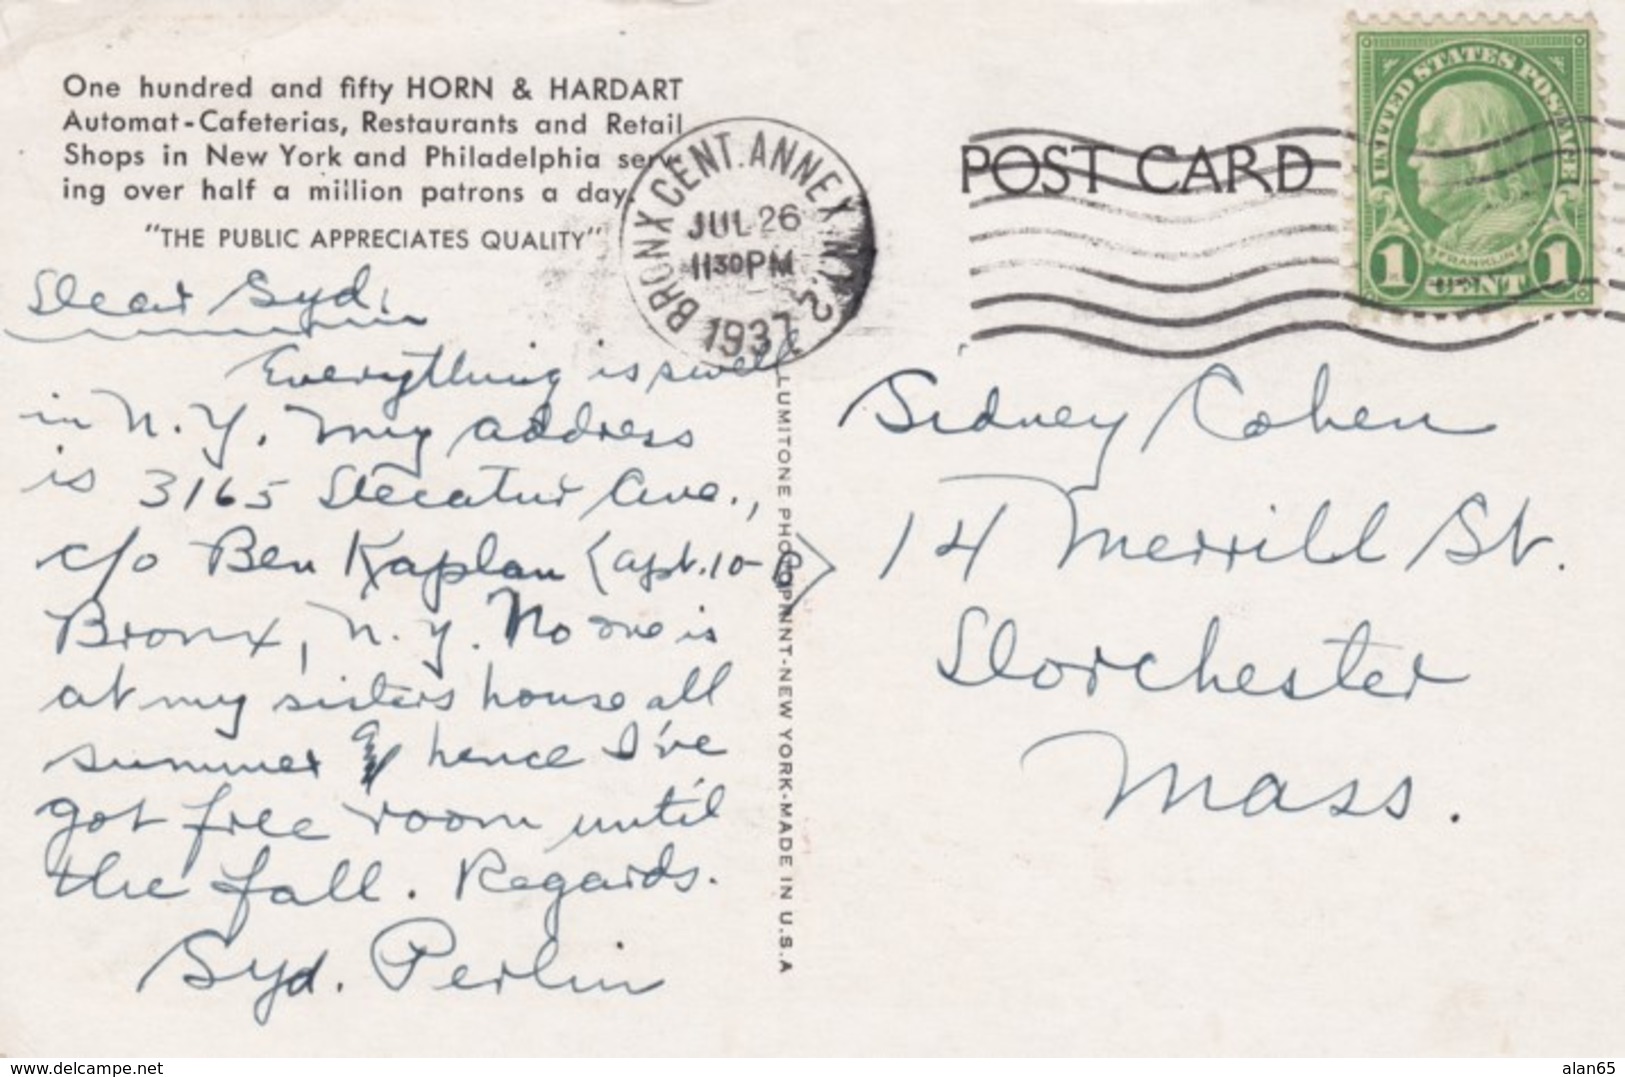 One hundred and fifty HORN & HARDART
Automat-Cafeterias, Restaurants and Retail
Shops in New York and Philadelphia serv-
ing over half a million patrons a day.
"THE PUBLIC APPRECIATES QUALITY"
BRONX CENT. ANNEX N.Y.
JUL 26
1130PM
1937
POST CARD
UNITED STATES POSTAGE
FRANKLIN
1 CENT 1
Dear Syd,
Everything is swell
in N.Y. My address
is 3165 Decatur Ave.,
c/o Ben Kaplan (apt. 10-
Bronx, N.Y. No one is
at my sisters house all
summer hence I've
got free room until
the fall. Regards.
Syd. Perlin
LUMITONE PHOTOPRINT-NEW YORK-MADE IN U.S.A
Sidney Cohen
14 Merrill St.
Dorchester
Mass.
www.delcampe.net
alan65